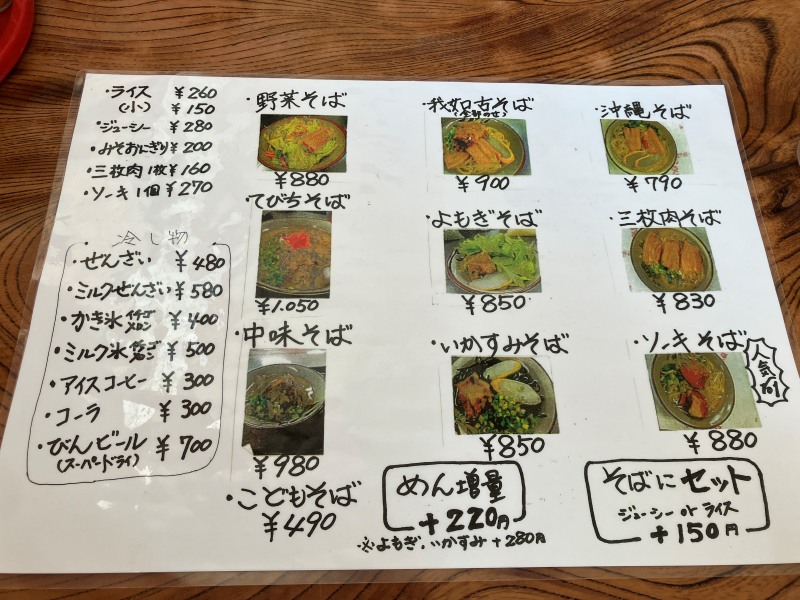 ・ライス ¥260
(小) ¥150
・ジューシー ¥280
・みそおにぎり ¥200
・三枚肉1枚 ¥160
・ソーキ1個 ¥270
・冷し物・
・ぜんざい ¥480
・ミルクぜんざい ¥580
・かき氷 イチゴ メロン ¥400
・ミルク氷 イチゴ メロン ¥500
・アイスコーヒー ¥300
・コーラ ¥300
・びんビール ¥700
(スーパードライ)
・野菜そば
¥880
・てびちそば
¥1.050
・中味そば
¥980
・こどもそば
¥490
・我如古そば
(全部のせ)
¥900
・よもぎそば
¥850
・いかすみそば
¥850
・沖縄そば
¥790
・三枚肉そば
¥830
・ソーキそば
人気No1
¥880
めん増量
+220円
※よもぎ、いかすみ+280円
そばにセット
ジューシー or ライス
+150円